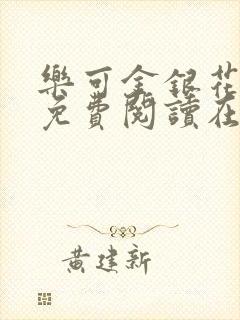 樂可金銀花
免費閱讀在
黃建新